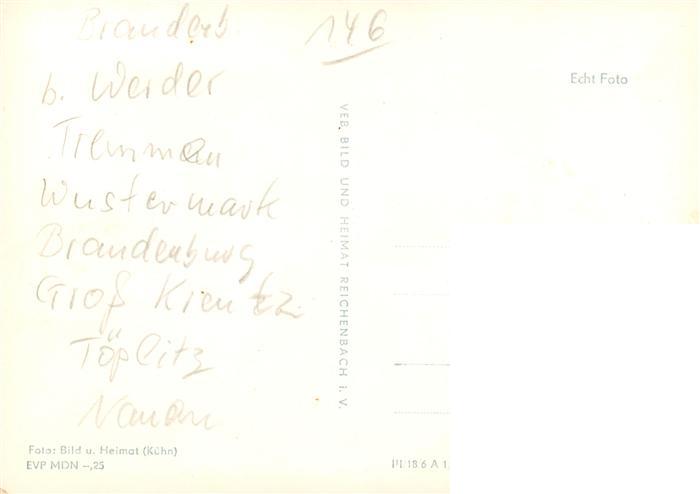 Brandenb.
146
b. Werder
Wustermark
Brandenburg
Groß Kreutz
Töplitz
Echt Foto
VEB BILD UND HEIMAT REICHENBACH i. V.
Foto: Bild u. Heimat (Kühn)
EVP MDN –,25
III 18 6 A 1